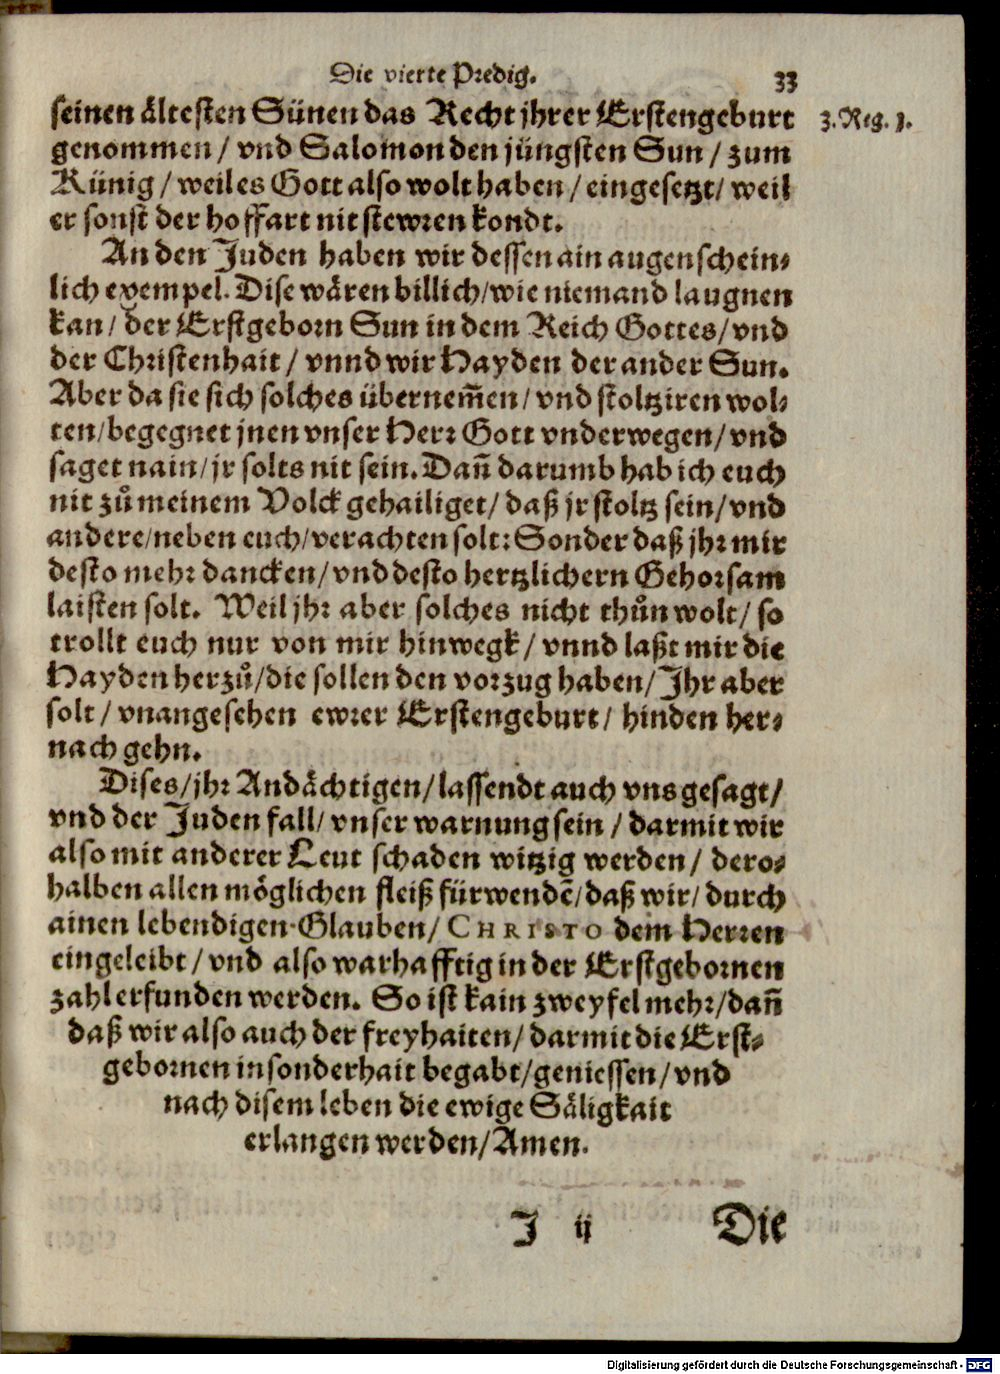 Die vierte Predig. 33
seinen ältesten Sünen das Recht jhrer Erstengeburt 3. Reg. 1.
genommen / vnd Salomon den jüngsten Sun / zum
Künig / weil es Gott also wolt haben / eingesetzt / weil
er sonst der hoffart nit stewren kondt.
An den Juden haben wir dessen ain augenschein⸗
lich exempel. Dise wären billich / wie niemand laugnen
kan / der Erstgeborn Sun in dem Reich Gottes / vnd
der Christenhait / vnnd wir Hayden der ander Sun.
Aber da sie sich solches übernem̃en / vnd stoltziren wol⸗
ten / begegnet jnen vnser Herr Gott vnderwegen / vnd
saget nain / jr solts nit sein. Dañ darumb hab ich euch
nit zů meinem Volck gehailiget / daß jr stoltz sein / vnd
andere / neben euch / verachten solt: Sonder daß jhr mir
desto mehr dancken / vnd desto hertzlichern Gehorsam
laisten solt. Weil jhr aber solches nicht thůn wolt / so
trollt euch nur von mir hinwegk / vnnd laßt mir die
Hayden herzů / die sollen den vorzug haben / Ihr aber
solt / vnangesehen ewrer Erstengeburt / hinden her⸗
nach gehn.
Dises / jhr Andächtigen / lassendt auch vns gesagt /
vnd der Juden fall / vnser warnung sein / darmit wir
also mit anderer Leut schaden witzig werden / dero⸗
halben allen möglichen fleiß fürwendẽ / daß wir / durch
ainen lebendigen Glauben / CHRISTO dem Herren
eingeleibt / vnd also warhafftig in der Erstgebornen
zahl erfunden werden. So ist kain zweyfel mehr / dañ
daß wir also auch der freyhaiten / darmit die Erst⸗
gebornen insonderhait begabt / geniessen / vnd
nach disem leben die ewige Säligkait
erlangen werden / Amen.
I ij Die
Digitalisierung gefördert durch die Deutsche Forschungsgemeinschaft - DFG